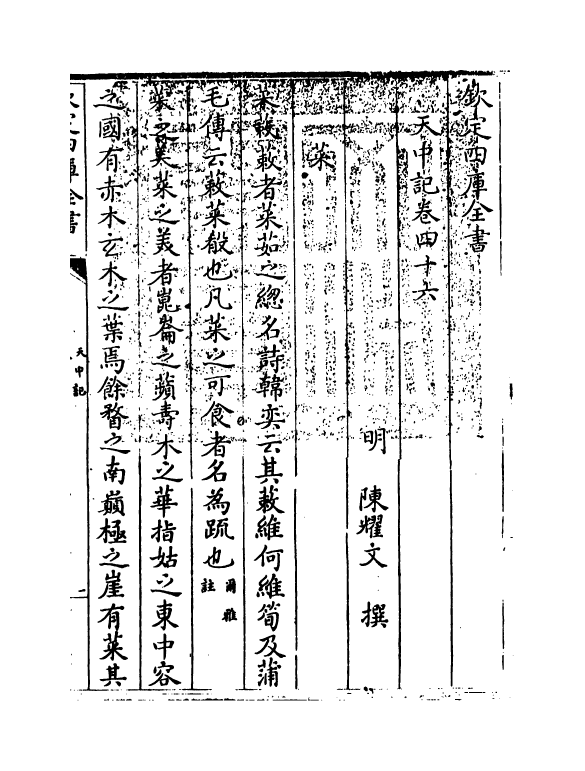 欽定四庫全書
天中記卷四十六
明 陳耀文 撰
菜
菜殽蔌者菜茹之緫名詩韓奕云其蔌維何維筍及蒲
毛傳云蔌菜殽也凡菜之可食者名為蔬也爾雅註
菜之美菜之美者崑崙之蘋壽木之華指姑之東中容
之國有赤木玄木之葉焉餘瞀之南巔極之崖有菜其
欽定四庫全書
天中記
一